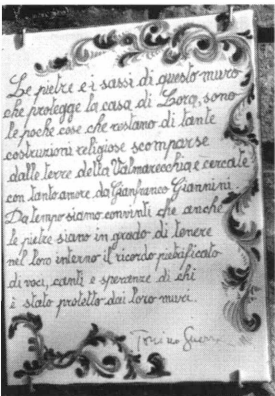 Le pietre e i sassi di questo muro
che protegge la casa di Lora, sono
le poche cose che restano di tante
costruzioni religiose scomparse
dalle terre della Valmarecchia e cercate
con tanto amore da Gianfranco Giannini.
Da tempo siamo convinti che anche
le pietre siano in grado di tenere
nel loro interno il ricordo pietrificato
di voci, canti e speranze di chi
è stato protetto dai loro muri.
Tonino Guerra